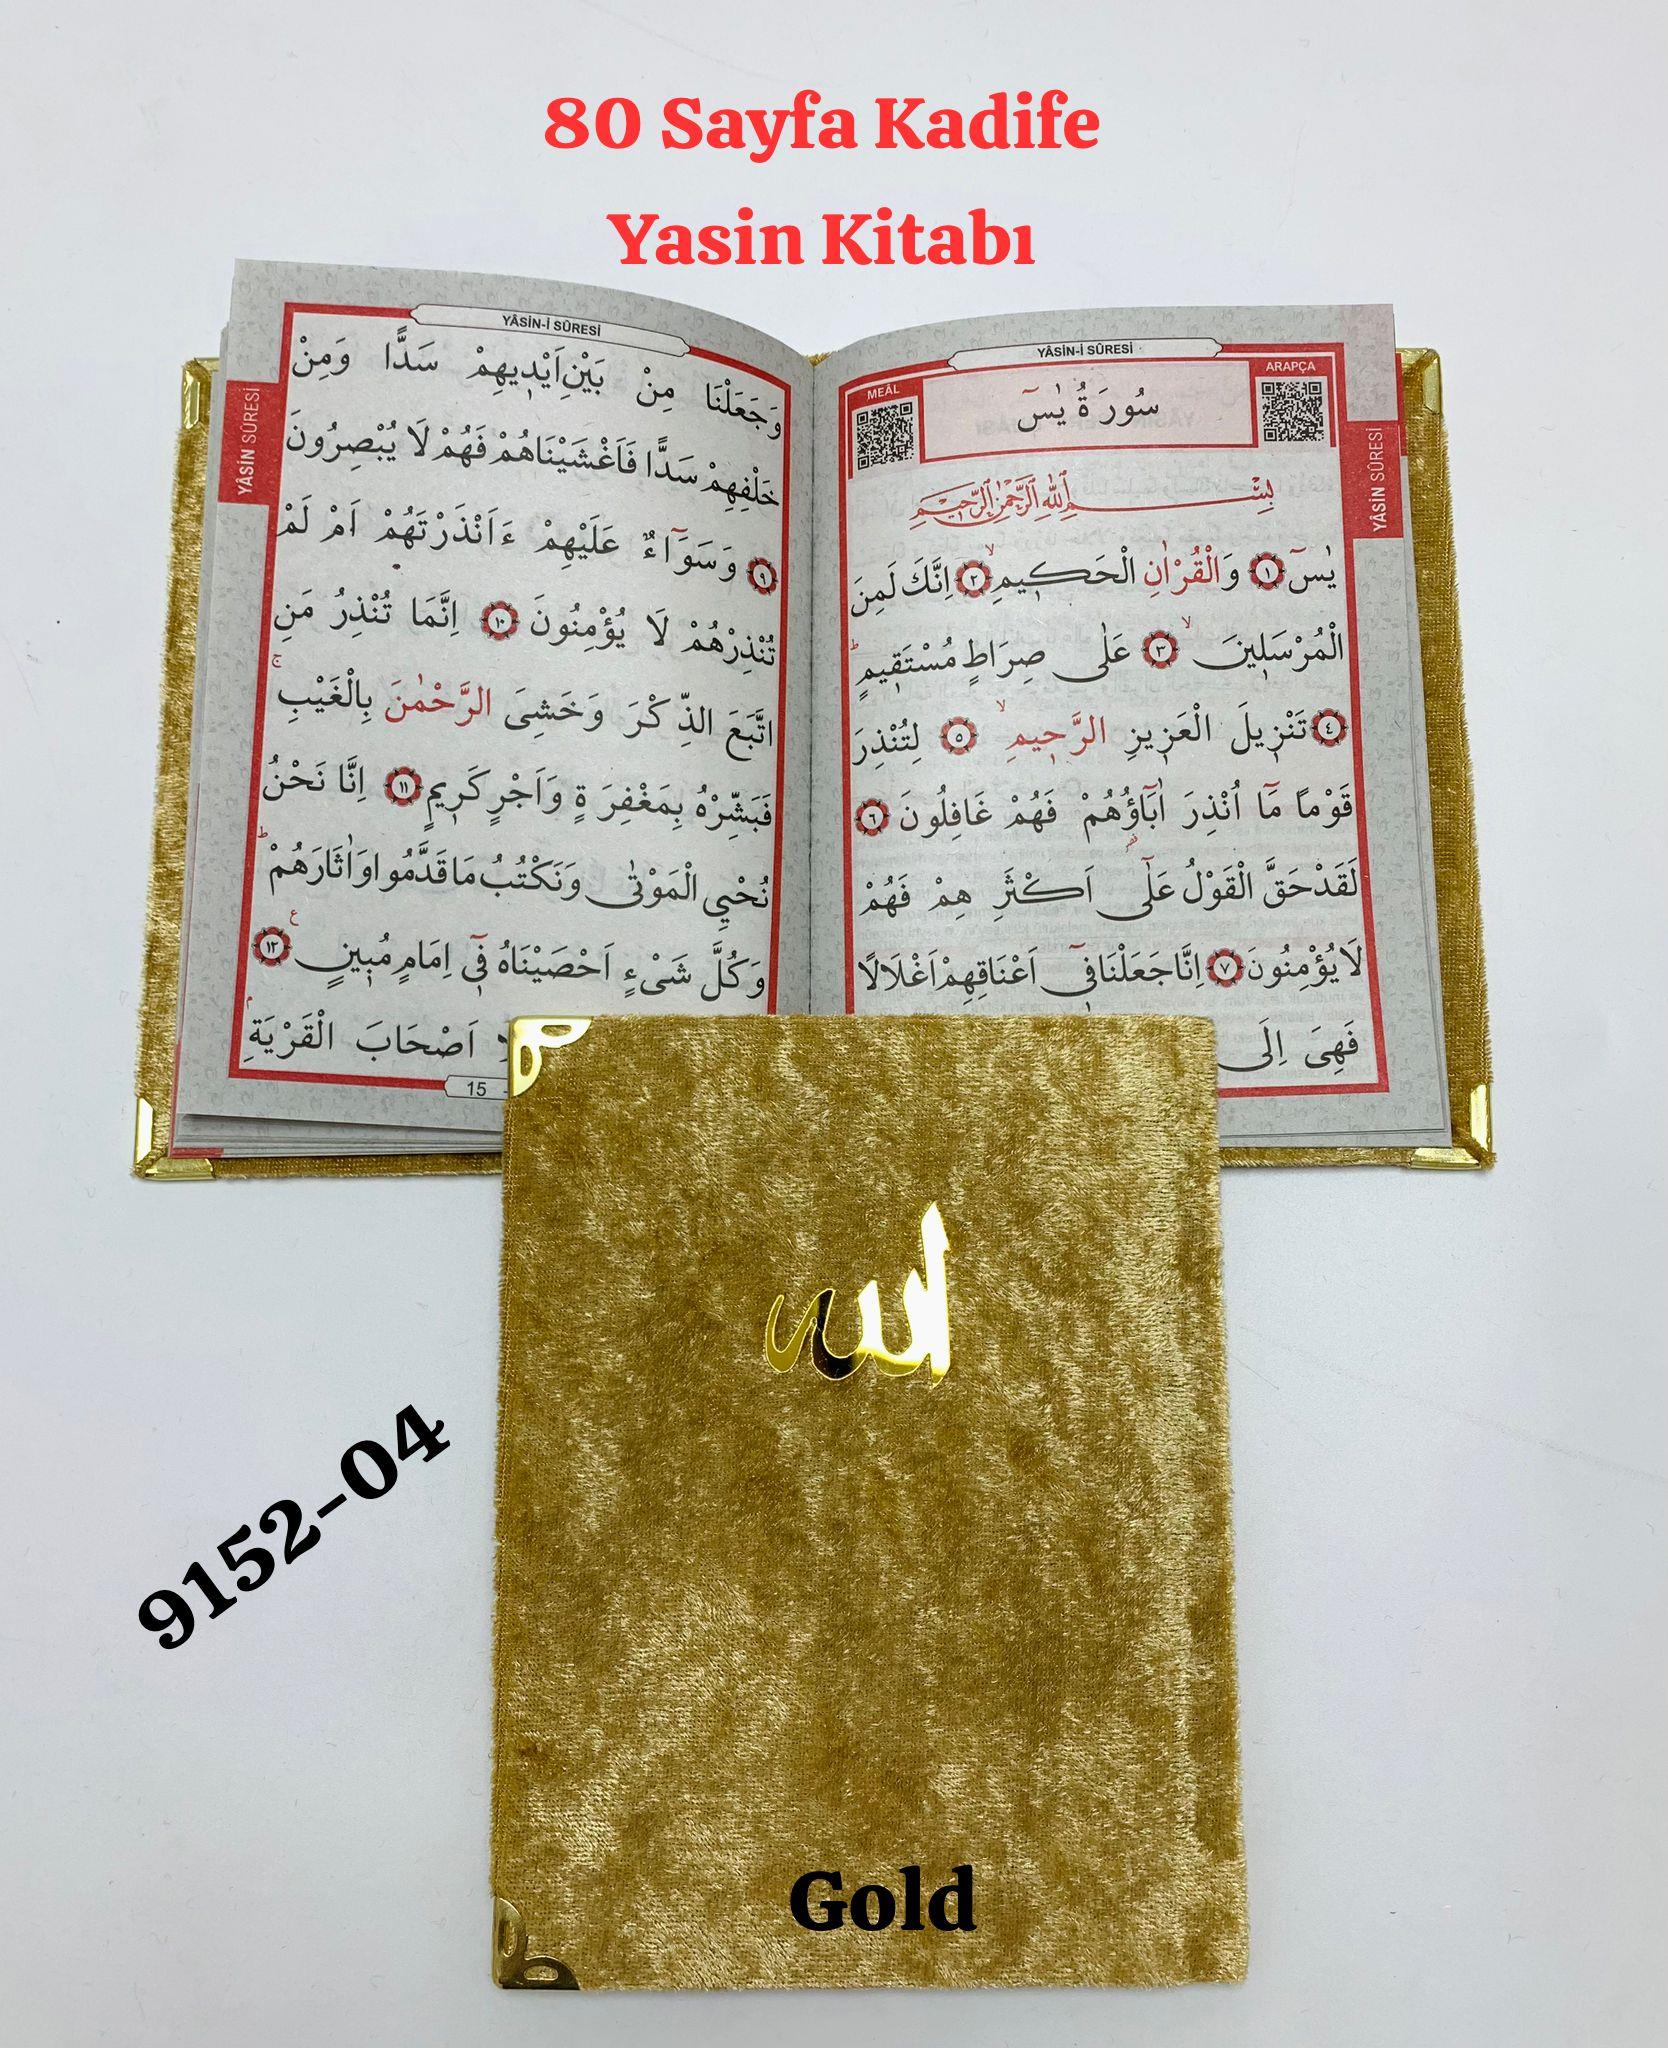 80 Sayfa Kadife
Yasin Kitabı
YÂSİN-İ SÛRESİ
YÂSİN SÛRESİ
MEÂL
ARAPÇA
سُورَةُ يٰسٓ
بِسْمِ اللّٰهِ الرَّحْمٰنِ الرَّحِيمِ
يٰسٓ ١ وَالْقُرْاٰنِ الْحَكِيمِ ٢ اِنَّكَ لَمِنَ
الْمُرْسَلِينَ ٣ عَلٰى صِرَاطٍ مُسْتَقِيمٍ
٤ تَنْزِيلَ الْعَزِيزِ الرَّحِيمِ ٥ لِتُنْذِرَ
قَوْمًا مَٓا اُنْذِرَ اٰبَٓاؤُهُمْ فَهُمْ غَافِلُونَ ٦
لَقَدْ حَقَّ الْقَوْلُ عَلٰٓى اَكْثَرِ هِمْ فَهُمْ
لَا يُؤْمِنُونَ ٧ اِنَّا جَعَلْنَا فِٓي اَعْنَاقِهِمْ اَغْلَالًا
فَهِيَ اِلَى
YÂSİN-İ SÛRESİ
YÂSİN SÛRESİ
وَجَعَلْنَا مِنْ بَيْنِ اَيْدِيهِمْ سَدًّا وَمِنْ
خَلْفِهِمْ سَدًّا فَاَغْشَيْنَاهُمْ فَهُمْ لَا يُبْصِرُونَ
٩ وَسَوَٓاءٌ عَلَيْهِمْ ءَاَنْذَرْتَهُمْ اَمْ لَمْ
تُنْذِرْهُمْ لَا يُؤْمِنُونَ ١٠ اِنَّمَا تُنْذِرُ مَنِ
اتَّبَعَ الذِّكْرَ وَخَشِيَ الرَّحْمٰنَ بِالْغَيْبِ
فَبَشِّرْهُ بِمَغْفِرَةٍ وَاَجْرٍ كَرِيمٍ ١١ اِنَّا نَحْنُ
نُحْيِ الْمَوْتٰى وَنَكْتُبُ مَا قَدَّمُوا وَاٰثَارَهُمْ
وَكُلَّ شَيْءٍ اَحْصَيْنَاهُ فِٓي اِمَامٍ مُبِينٍ ١٢
اَصْحَابَ الْقَرْيَةِ
15
الله
9152-04
Gold